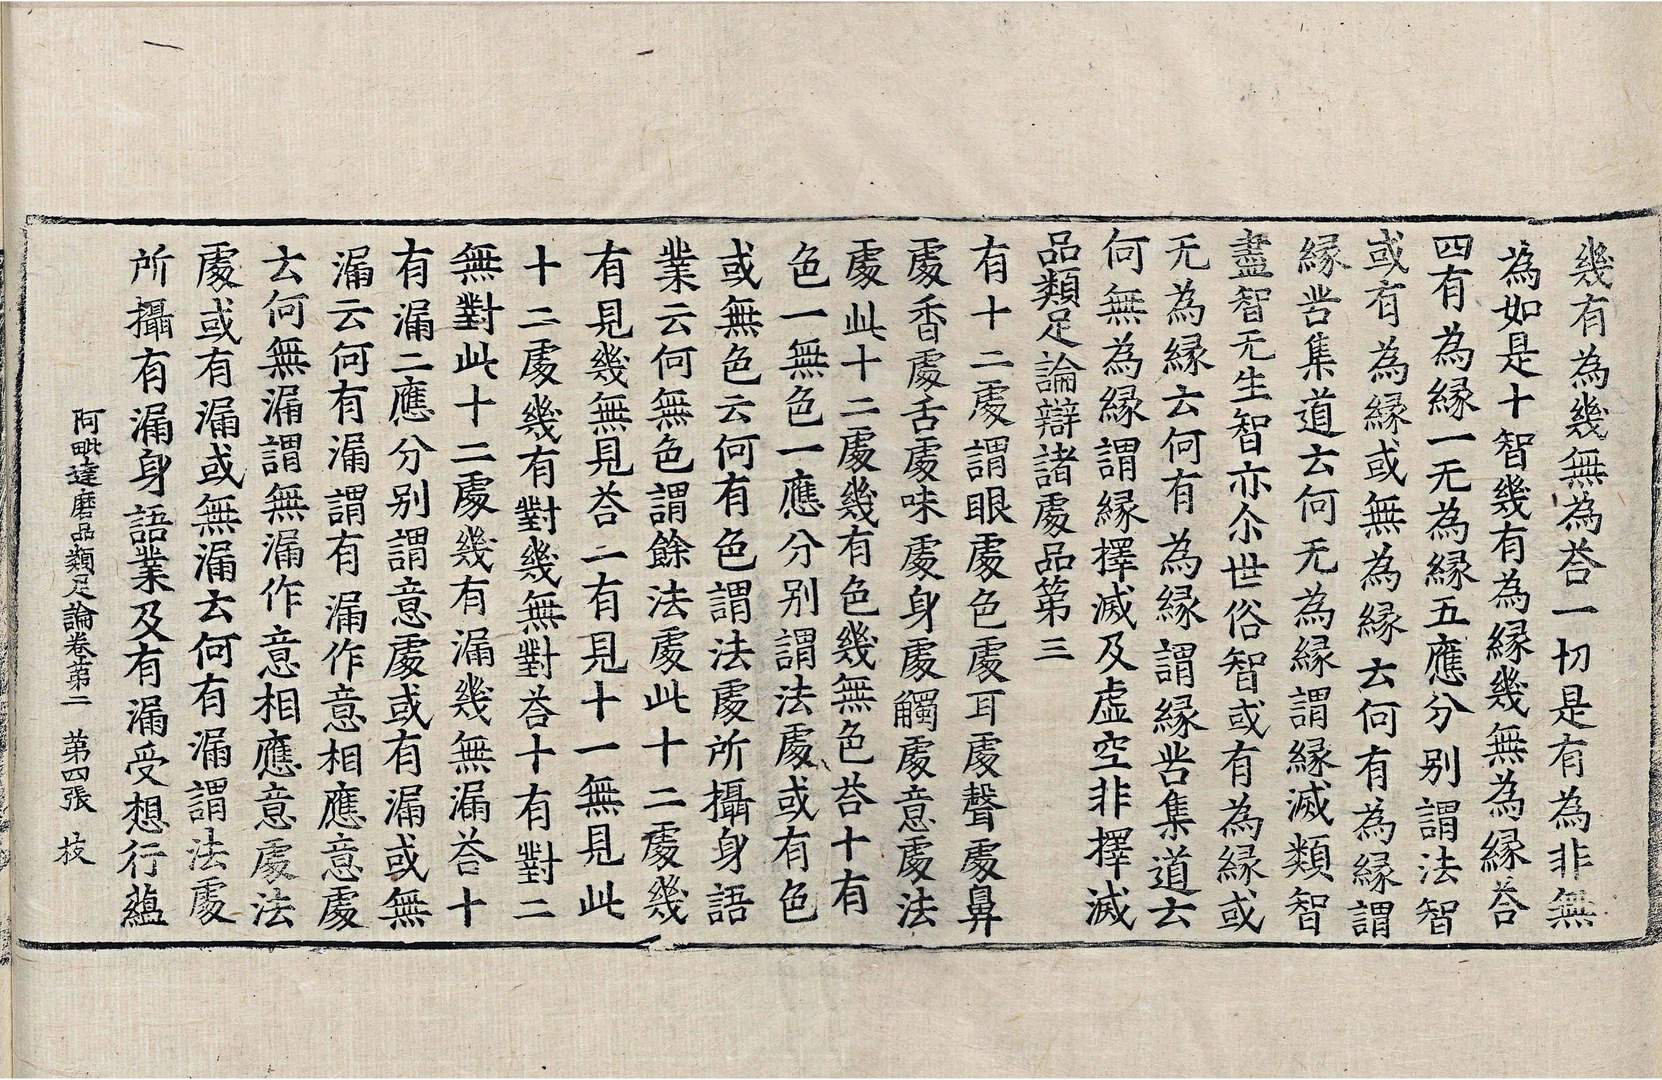 幾有為幾無為荅一切是有為非無
為如是十智幾有為縁幾無為縁荅
四有為縁一无為縁五應分别謂法智
或有為縁或無為縁云何有為縁謂
縁苦集道云何无為縁謂縁滅類智
盡智无生智亦尒世俗智或有為縁或
无為縁云何有為縁謂縁苦集道云
何無為縁謂縁擇滅及虚空非擇滅
品類足論辯諸處品第三
有十二處謂眼處色處耳處聲處鼻
處香處舌處味處身處觸處意處法
處此十二處幾有色幾無色荅十有
色一無色一應分别謂法處或有色
或無色云何有色謂法處所攝身語
業云何無色謂餘法處此十二處幾
有見幾無見荅一有見十一無見此
十二處幾有對幾無對荅十有對二
無對此十二處幾有漏幾無漏荅十
有漏二應分别謂意處或有漏或無
漏云何有漏謂有漏作意相應意處
云何無漏謂無漏作意相應意處法
處或有漏或無漏云何有漏謂法處
所攝有漏身語業及有漏受想行蘊
阿毗達磨品類足論卷第二 第四張 枝